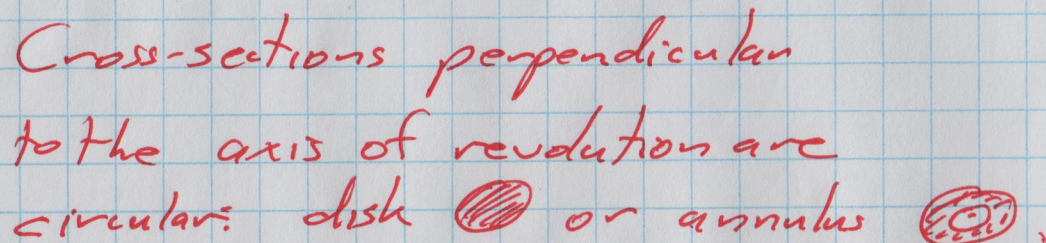 Cross-sections perpendicular
to the axis of revolution are
circular: disk or annulus.